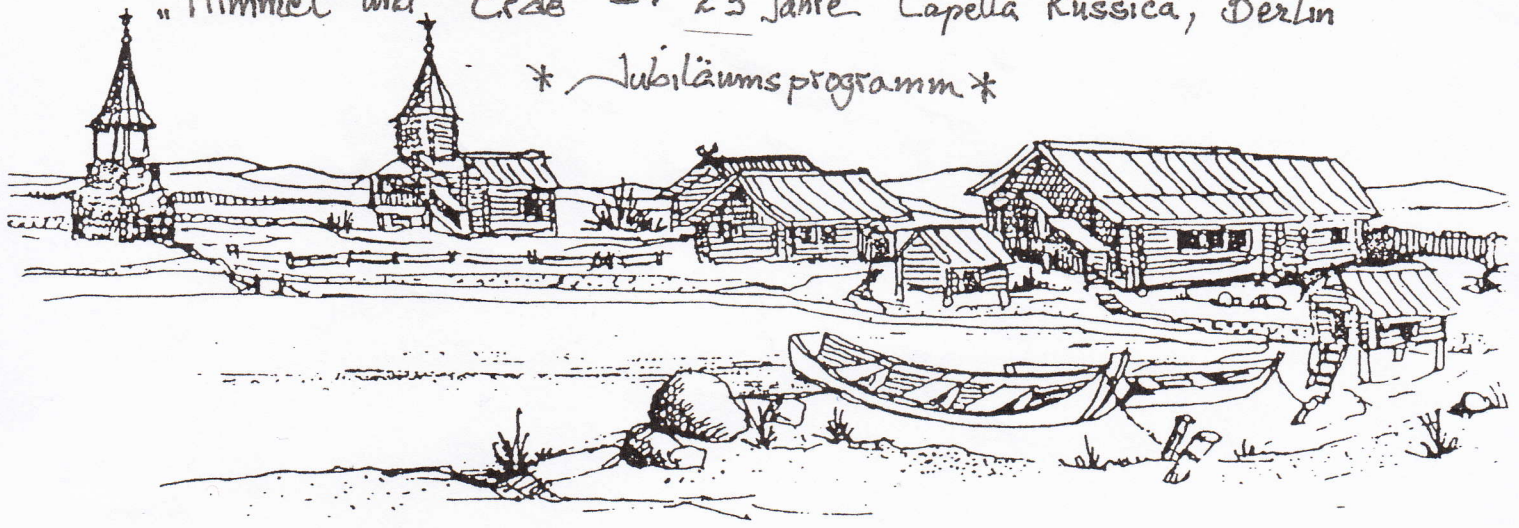 „Himmel und Erde" – 25 Jahre Capella Russica, Berlin
* Jubiläumsprogramm *